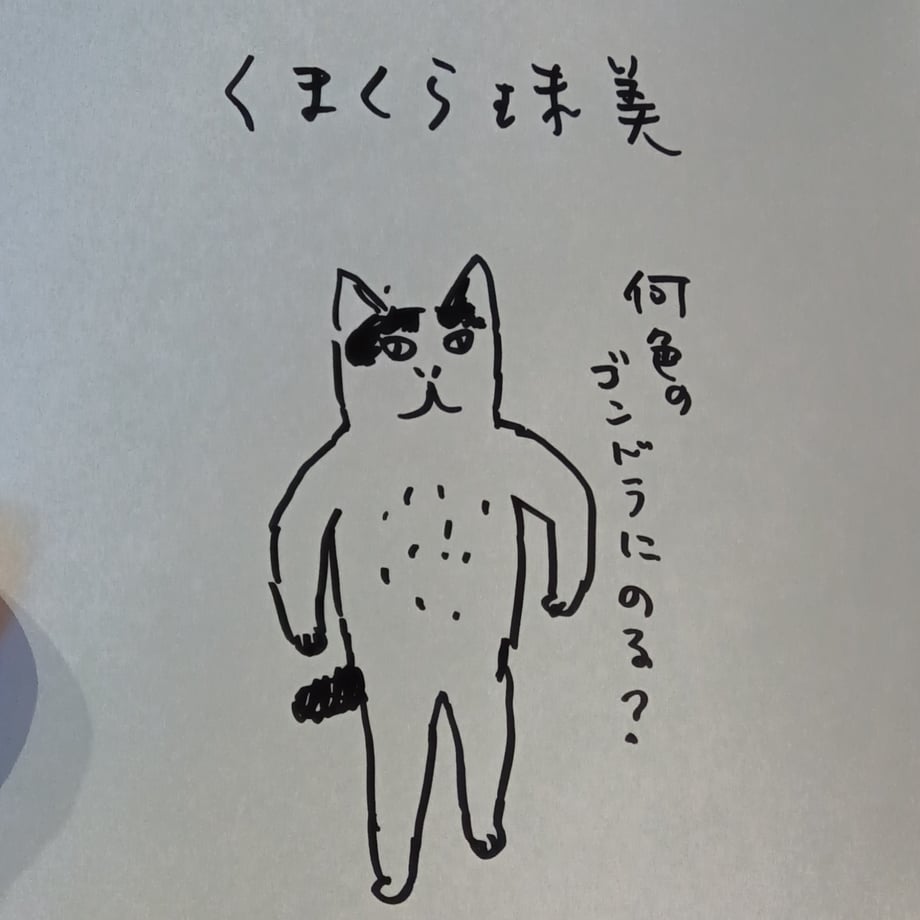 くまくら珠美
何色の
ゴンドラにのる？